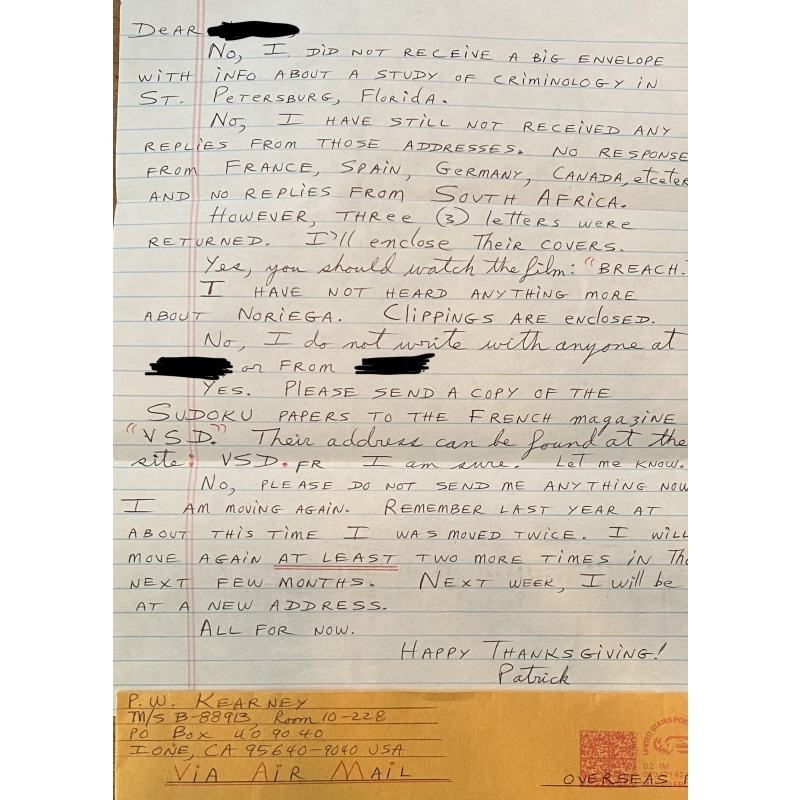 Dear
No, I did not receive a big envelope
with info about a study of criminology in
St. Petersburg, Florida.
No, I have still not received any
replies from those addresses. No response
from France, Spain, Germany, Canada, etceter
and no replies from South Africa.
However, three (3) letters were
returned. I'll enclose their covers.
Yes, you should watch the film: "BREACH."
I have not heard anything more
about Noriega. Clippings are enclosed.
No, I do not write with anyone at
or from
Yes. Please send a copy of the
Sudoku papers to the French magazine
"VSD." Their address can be found at the
site: VSD.FR I am sure. Let me know.
No, please do not send me anything now
I am moving again. Remember last year at
about this time I was moved twice. I will
move again at least two more times in the
next few months. Next week, I will be
at a new address.
All for now.
Happy Thanksgiving!
Patrick
P.W. KEARNEY
M/S B-88913, Room 10-228
PO Box 40 90 40
IONE, CA 95640-9040 USA
VIA AIR MAIL
UNITED STATES POS
02 1M
OVERSEAS